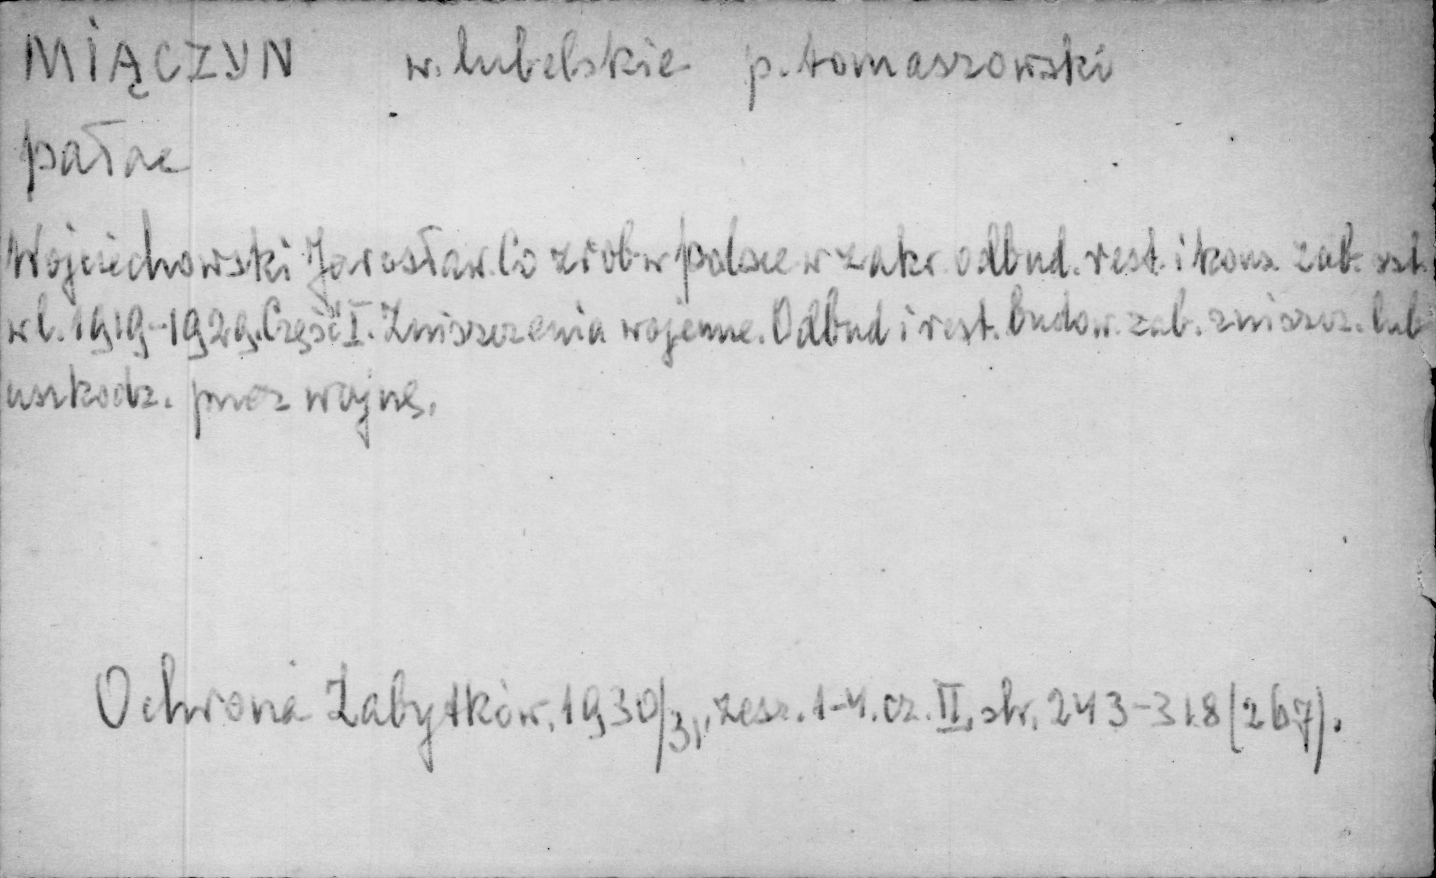 MIĄCZYN w. lubelskie p. tomaszowski
pałac
Wojciechowski Jarosław. Co zrob w Polsce w zakr. odbud. rest. i kons. zab. szt.
w l. 1919-1929. Część I. Zniszczenia wojenne. Odbud i rest. budow. zab. zniszcz. lub
uszkodz. przez wojnę.
Ochrona Zabytków, 1930/31, zesz. 1-4. cz. II, str. 243-318 (267).